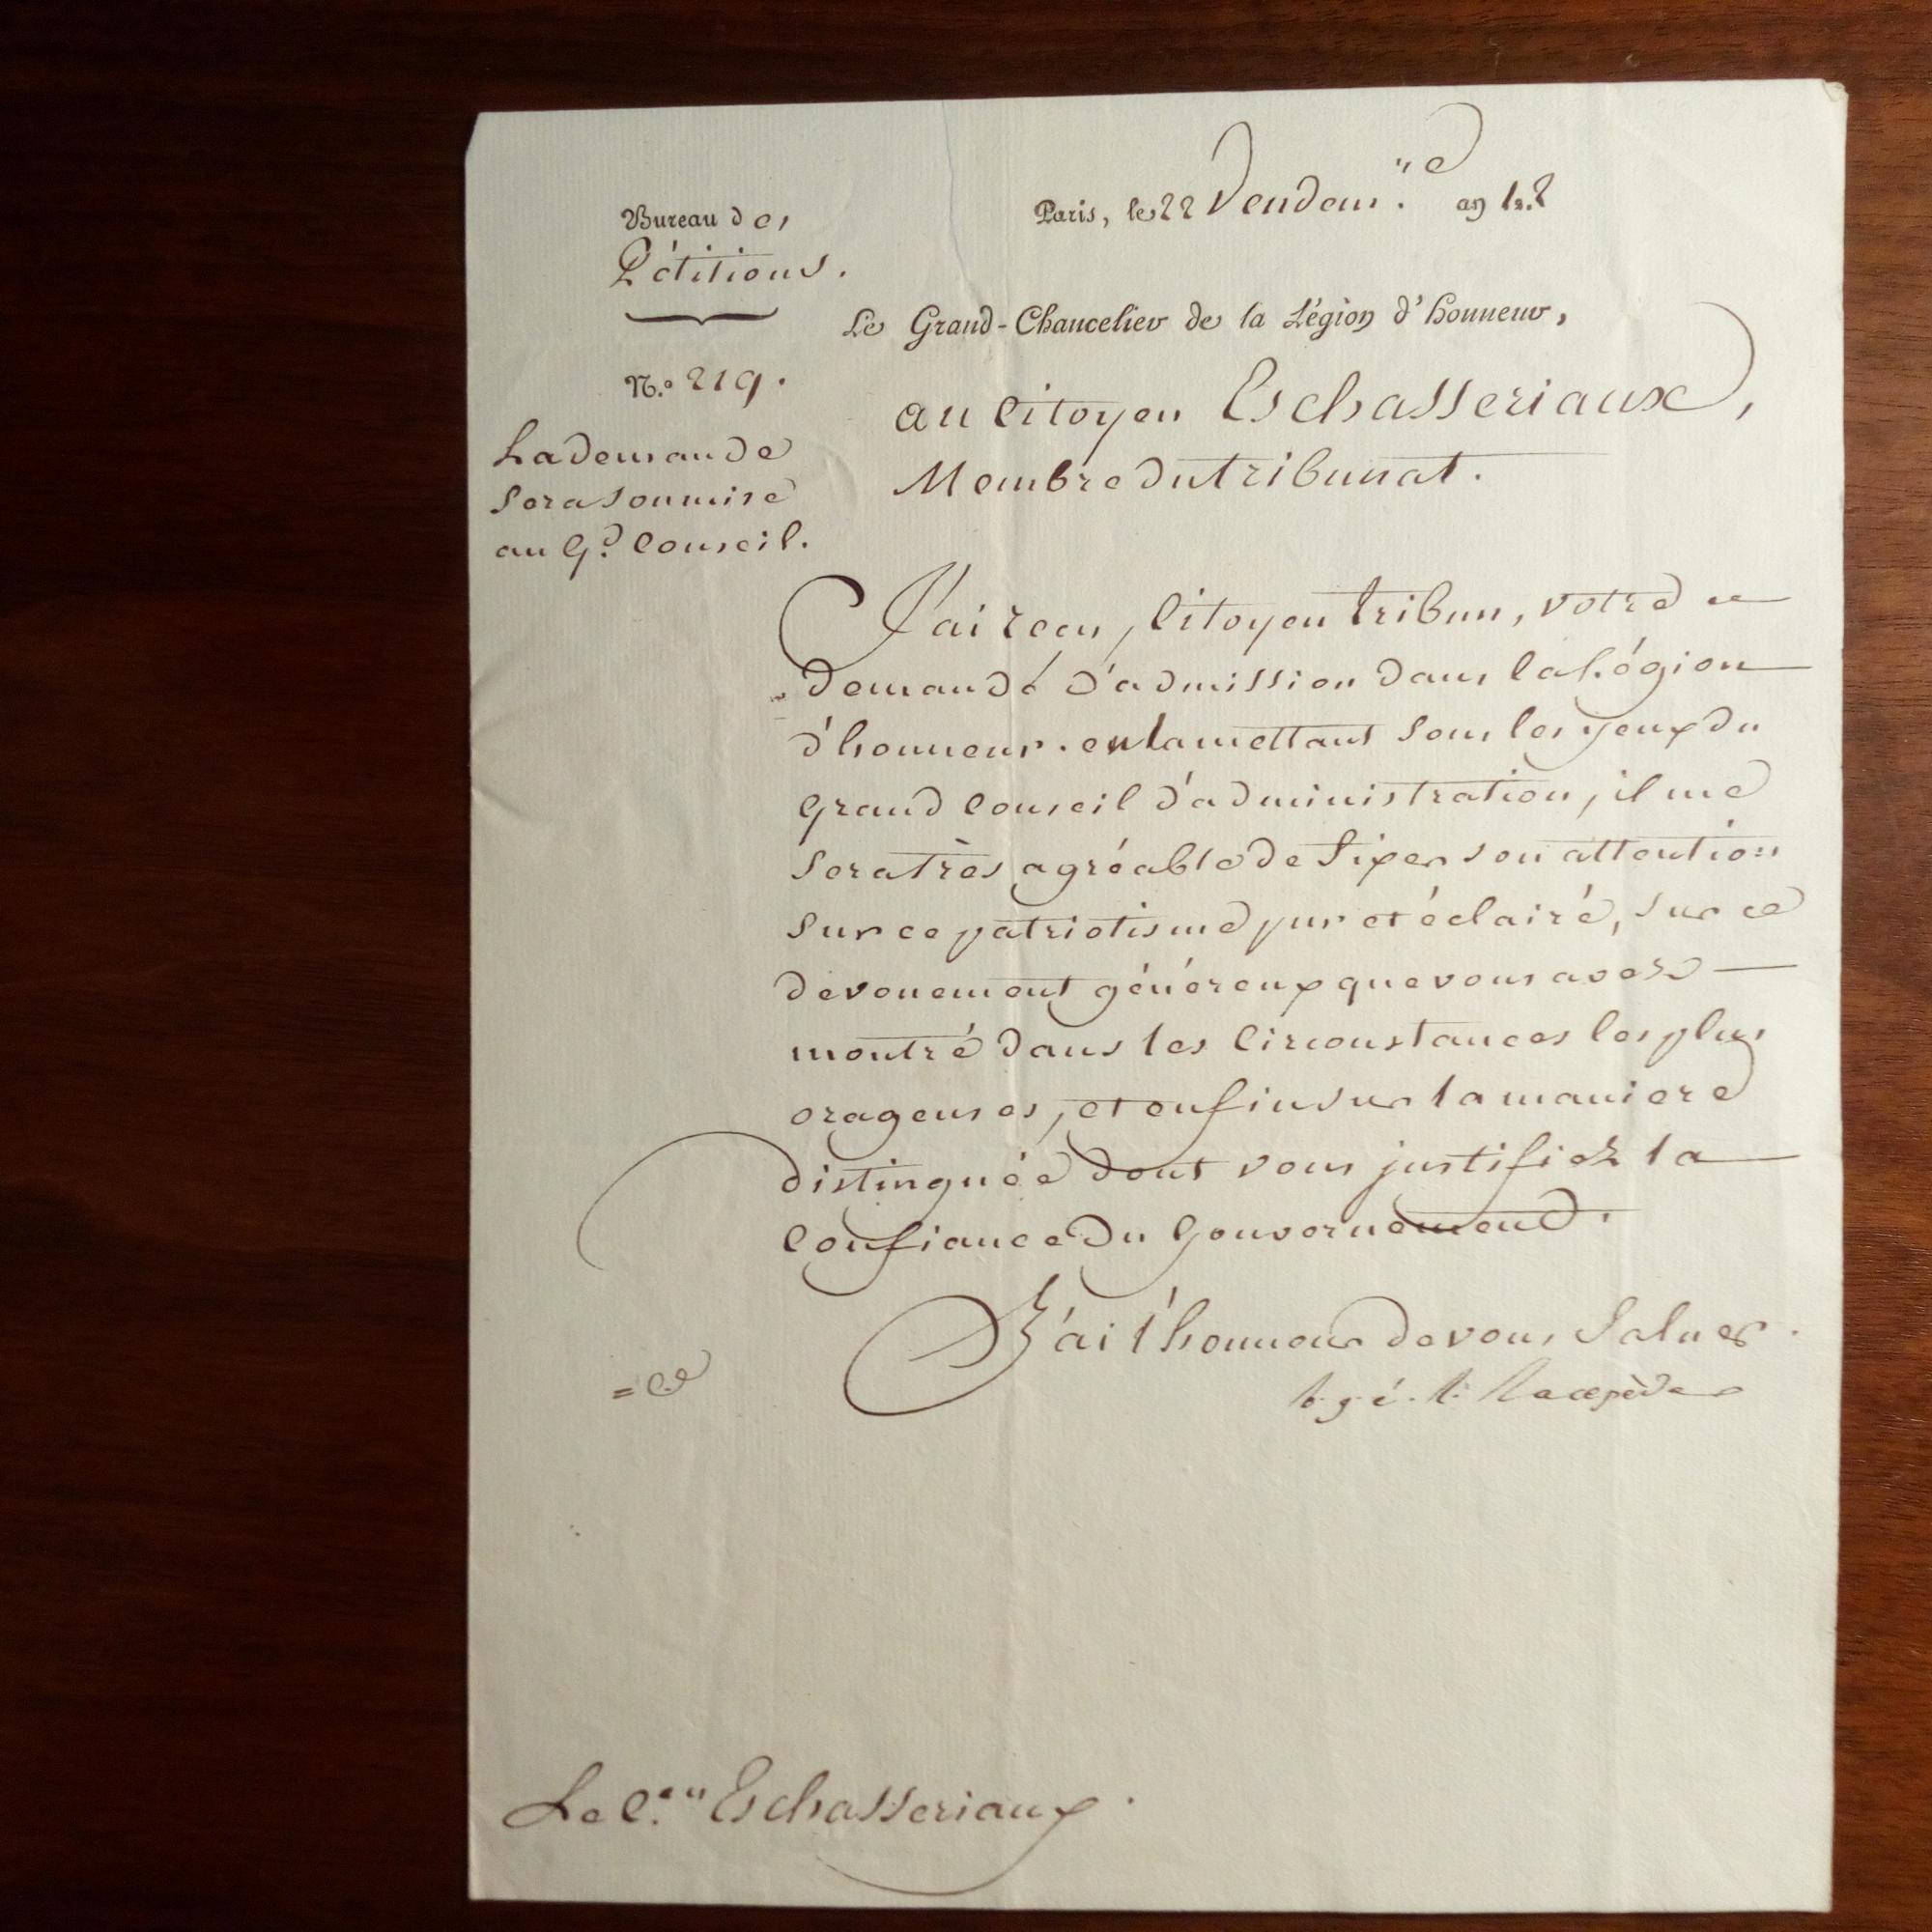 Bureau des
Pétitions.
N.o 219.
La demande
sera soumise
au G.d Conseil.
Paris, le 22 Vendem.re an 12.
Le Grand-Chancelier de la Légion d'honneur,
au Citoyen Eschasseriaux,
Membre du tribunat.
J'ai reçu, Citoyen tribun, votre
demande d'admission dans la Légion
d'honneur. en la mettant sous les yeux du
grand Conseil d'administration, il me
sera très agréable de fixer son attention
sur ce patriotisme pur et éclairé, sur ce
devouement généreux que vous avez
montré dans les Circonstances les plus
orageuses, et enfin sur la maniere
distinguée dont vous justifiez la
Confiance du Gouvernement.
J'ai l'honneur de vous Saluer.
b. g. é. l. Lacepède
Le C.en Eschasseriaux.